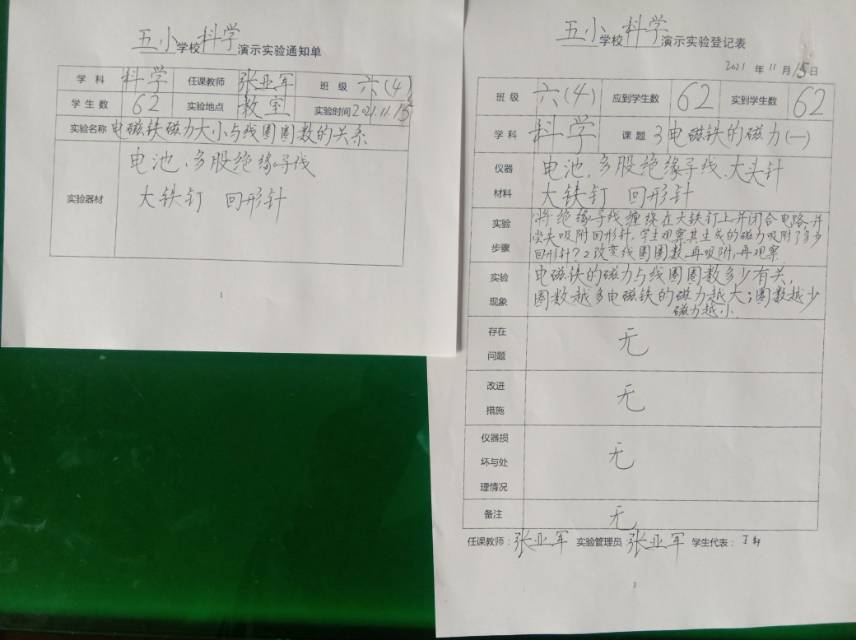 五小学校科学演示实验通知单
学科 科学 任课教师 张业军 班级 六(4)
学生数 62 实验地点 教室 实验时间 2021.11.15
实验名称 电磁铁磁力大小与线圈圈数的关系
实验器材 电池、多股绝缘导线
大铁钉 回形针
1
五小学校科学演示实验登记表
2021年11月15日
班级 六(4) 应到学生数 62 实到学生数 62
学科 科学 课题 3电磁铁的磁力(一)
仪器材料 电池、多股绝缘导线、大头针
大铁钉 回形针
实验步骤 将绝缘导线缠绕在大铁钉上并闭合电路,并
尝试吸附回形针,学生观察其生成的磁力吸附了多少
回形针?2改变线圈圈数,再吸附,再观察
实验现象 电磁铁的磁力与线圈圈数多少有关,
圈数越多电磁铁的磁力越大;圈数越少
磁力越小
存在问题 无
改进措施 无
仪器损坏与处理情况 无
备注 无
任课教师:张业军 实验管理员:张业军 学生代表: